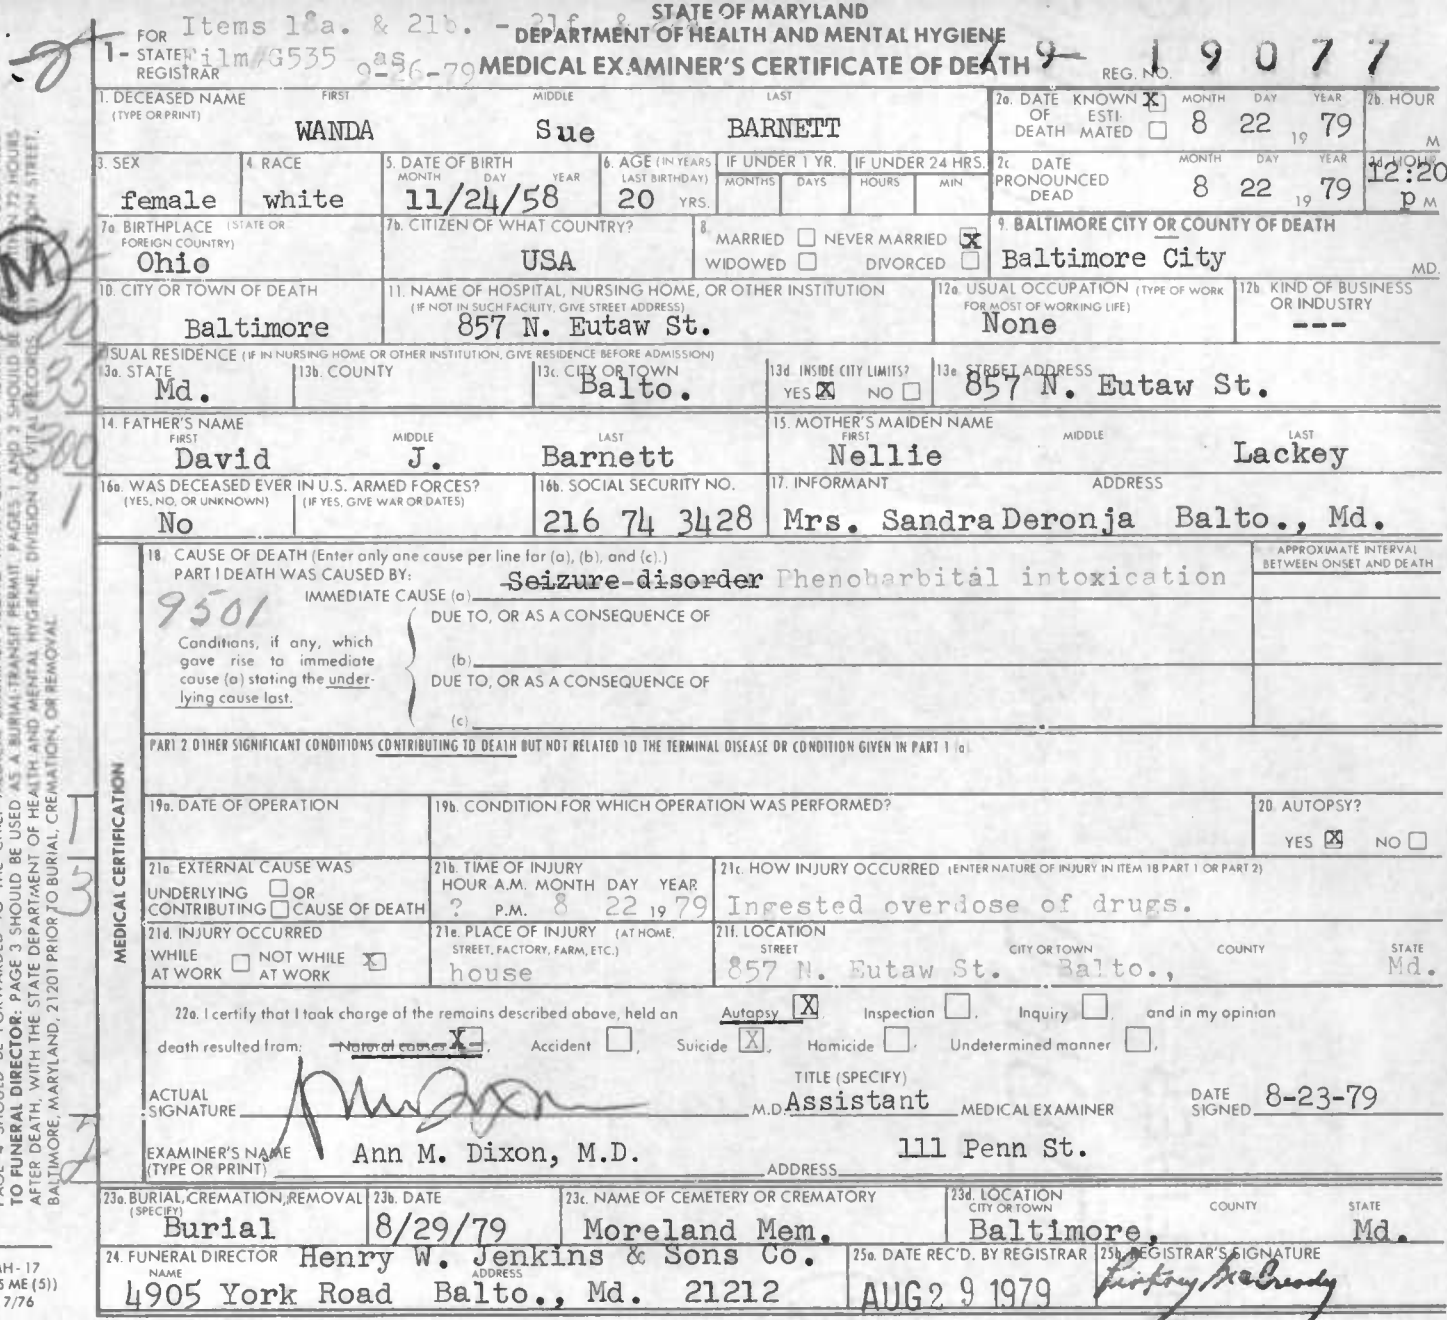 STATE OF MARYLAND
DEPARTMENT OF HEALTH AND MENTAL HYGIENE
MEDICAL EXAMINER'S CERTIFICATE OF DEATH
FOR Items 18a. & 21b. - 21f. &
1- STATE Film#G535 as
REGISTRAR 9-26-79
REG. NO. 79- 19077
1. DECEASED NAME FIRST MIDDLE LAST
(TYPE OR PRINT)
WANDA Sue BARNETT
2a. DATE OF DEATH KNOWN X ESTIMATED MONTH DAY YEAR
8 22 19 79
2b. HOUR
M
3. SEX
female
4. RACE
white
5. DATE OF BIRTH
MONTH DAY YEAR
11/24/58
6. AGE (IN YEARS LAST BIRTHDAY)
20 YRS.
IF UNDER 1 YR.
MONTHS DAYS
IF UNDER 24 HRS.
HOURS MIN
2c. DATE PRONOUNCED DEAD MONTH DAY YEAR
8 22 19 79
2d. HOUR
12:20
p M
7a. BIRTHPLACE (STATE OR FOREIGN COUNTRY)
Ohio
7b. CITIZEN OF WHAT COUNTRY?
USA
8. MARRIED NEVER MARRIED X
WIDOWED DIVORCED
9. BALTIMORE CITY OR COUNTY OF DEATH
Baltimore City MD.
10. CITY OR TOWN OF DEATH
Baltimore
11. NAME OF HOSPITAL, NURSING HOME, OR OTHER INSTITUTION
(IF NOT IN SUCH FACILITY, GIVE STREET ADDRESS)
857 N. Eutaw St.
12a. USUAL OCCUPATION (TYPE OF WORK FOR MOST OF WORKING LIFE)
None
12b. KIND OF BUSINESS OR INDUSTRY
---
USUAL RESIDENCE (IF IN NURSING HOME OR OTHER INSTITUTION, GIVE RESIDENCE BEFORE ADMISSION)
13a. STATE
Md.
13b. COUNTY
13c. CITY OR TOWN
Balto.
13d. INSIDE CITY LIMITS?
YES X NO
13e. STREET ADDRESS
857 N. Eutaw St.
14. FATHER'S NAME
FIRST MIDDLE LAST
David J. Barnett
15. MOTHER'S MAIDEN NAME
FIRST MIDDLE LAST
Nellie Lackey
16a. WAS DECEASED EVER IN U.S. ARMED FORCES?
(YES, NO, OR UNKNOWN) (IF YES, GIVE WAR OR DATES)
No
16b. SOCIAL SECURITY NO.
216 74 3428
17. INFORMANT ADDRESS
Mrs. Sandra Deronja Balto., Md.
MEDICAL CERTIFICATION
18. CAUSE OF DEATH (Enter only one cause per line for (a), (b), and (c).)
PART I DEATH WAS CAUSED BY:
IMMEDIATE CAUSE (a) Seizure disorder Phenobarbital intoxication
APPROXIMATE INTERVAL BETWEEN ONSET AND DEATH
9501
DUE TO, OR AS A CONSEQUENCE OF
Conditions, if any, which gave rise to immediate cause (a) stating the underlying cause last.
(b)
DUE TO, OR AS A CONSEQUENCE OF
(c)
PART 2 OTHER SIGNIFICANT CONDITIONS CONTRIBUTING TO DEATH BUT NOT RELATED TO THE TERMINAL DISEASE OR CONDITION GIVEN IN PART 1 (a)
19a. DATE OF OPERATION
19b. CONDITION FOR WHICH OPERATION WAS PERFORMED?
20. AUTOPSY?
YES X NO
21a. EXTERNAL CAUSE WAS
UNDERLYING OR
CONTRIBUTING CAUSE OF DEATH
21b. TIME OF INJURY
HOUR A.M. MONTH DAY YEAR
? P.M. 8 22 19 79
21c. HOW INJURY OCCURRED (ENTER NATURE OF INJURY IN ITEM 18 PART 1 OR PART 2)
Ingested overdose of drugs.
21d. INJURY OCCURRED
WHILE AT WORK NOT WHILE AT WORK X
21e. PLACE OF INJURY (AT HOME, STREET, FACTORY, FARM, ETC.)
house
21f. LOCATION
STREET CITY OR TOWN COUNTY STATE
857 N. Eutaw St. Balto., Md.
22a. I certify that I took charge of the remains described above, held an Autopsy X, Inspection, Inquiry, and in my opinion
death resulted from: Natural causes X, Accident, Suicide X, Homicide, Undetermined manner.
ACTUAL SIGNATURE
TITLE (SPECIFY)
M.D. Assistant MEDICAL EXAMINER
DATE SIGNED 8-23-79
EXAMINER'S NAME (TYPE OR PRINT) Ann M. Dixon, M.D. ADDRESS 111 Penn St.
23a. BURIAL, CREMATION, REMOVAL (SPECIFY)
Burial
23b. DATE
8/29/79
23c. NAME OF CEMETERY OR CREMATORY
Moreland Mem.
23d. LOCATION
CITY OR TOWN COUNTY STATE
Baltimore, Md.
24. FUNERAL DIRECTOR Henry W. Jenkins & Sons Co.
NAME ADDRESS
4905 York Road Balto., Md. 21212
25a. DATE REC'D. BY REGISTRAR
AUG 29 1979
25b. REGISTRAR'S SIGNATURE
TO FUNERAL DIRECTOR: PAGE 3 SHOULD BE USED AS A BURIAL-TRANSIT PERMIT. PAGES 1 AND 2 SHOULD BE
AFTER DEATH, WITH THE STATE DEPARTMENT OF HEALTH AND MENTAL HYGIENE, DIVISION OF VITAL RECORDS
BALTIMORE, MARYLAND, 21201 PRIOR TO BURIAL, CREMATION, OR REMOVAL
72 HOURS
STREET,
M
35
300
1
1
3
2
- 17
ME (5))
7/76